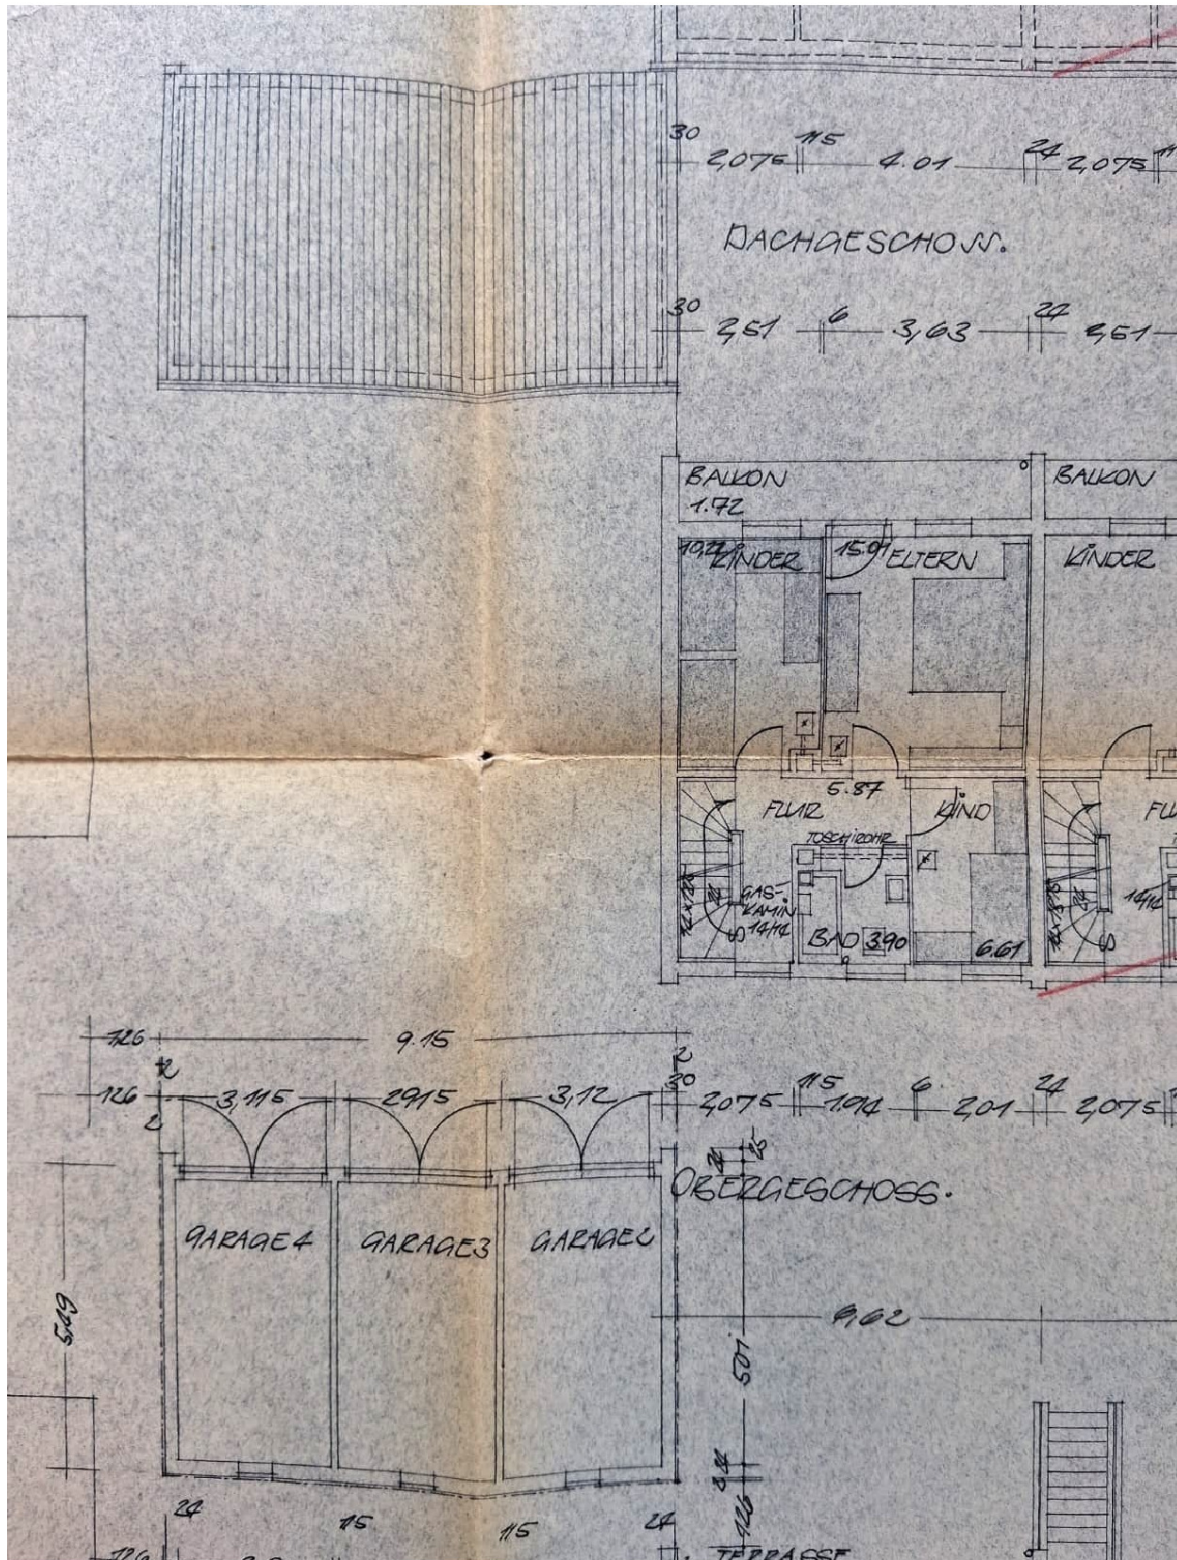 30 2,075 11⁵ 4.01 24 2,075
DACHGESCHOSS.
30 2,51 6 3,63 24 2,51
BALKON BALKON
1.72
KINDER 15.91 ELTERN KINDER
5.87
FLUR KIND FLU
GAS-
KAMIN 14/14
14/14 BAD 3.90 6.61
126 9.15
126 3,115 2915 3,12 30 2,075 11⁵ 6 2,01 24 2,075
OBERGESCHOSS.
GARAGE 4 GARAGE 3 GARAGE 2
6,62
5,49
501
24 24 126
24 115 115 24
126 TERRASSE